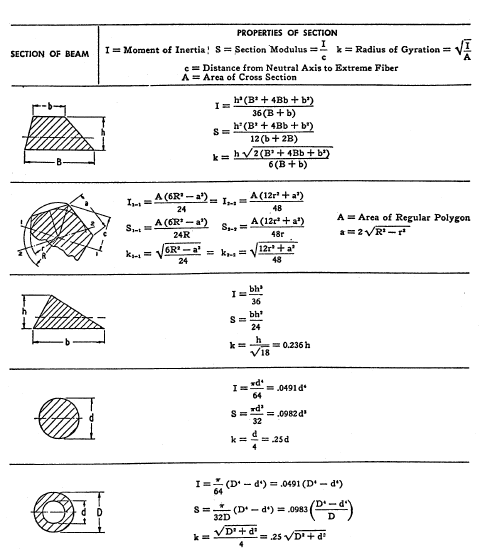 PROPERTIES OF SECTION
SECTION OF BEAM
I = Moment of Inertia; S = Section Modulus = I/c k = Radius of Gyration = √(I/A)
c = Distance from Neutral Axis to Extreme Fiber
A = Area of Cross Section
b
h
B
I = h³(B² + 4Bb + b²)/36(B + b)
S = h²(B² + 4Bb + b²)/12(b + 2B)
k = h√2(B² + 4Bb + b²)/6(B + b)
a
c
1
2
r
R
2
1
I₁₋₁ = A(6R² — a²)/24 = I₂₋₂ = A(12r² + a²)/48
S₁₋₁ = A(6R² — a²)/24R S₂₋₂ = A(12r² + a²)/48r
k₁₋₁ = √(6R² — a²/24) = k₂₋₂ = √(12r² + a²/48)
A = Area of Regular Polygon
a = 2√R² — r²
h
b
I = bh³/36
S = bh²/24
k = h/√18 = 0.236 h
d
I = πd⁴/64 = .0491 d⁴
S = πd³/32 = .0982 d³
k = d/4 = .25 d
d
D
I = π/64 (D⁴ — d⁴) = .0491 (D⁴ — d⁴)
S = π/32D (D⁴ — d⁴) = .0983 (D⁴ — d⁴/D)
k = √D² + d²/4 = .25 √D² + d²